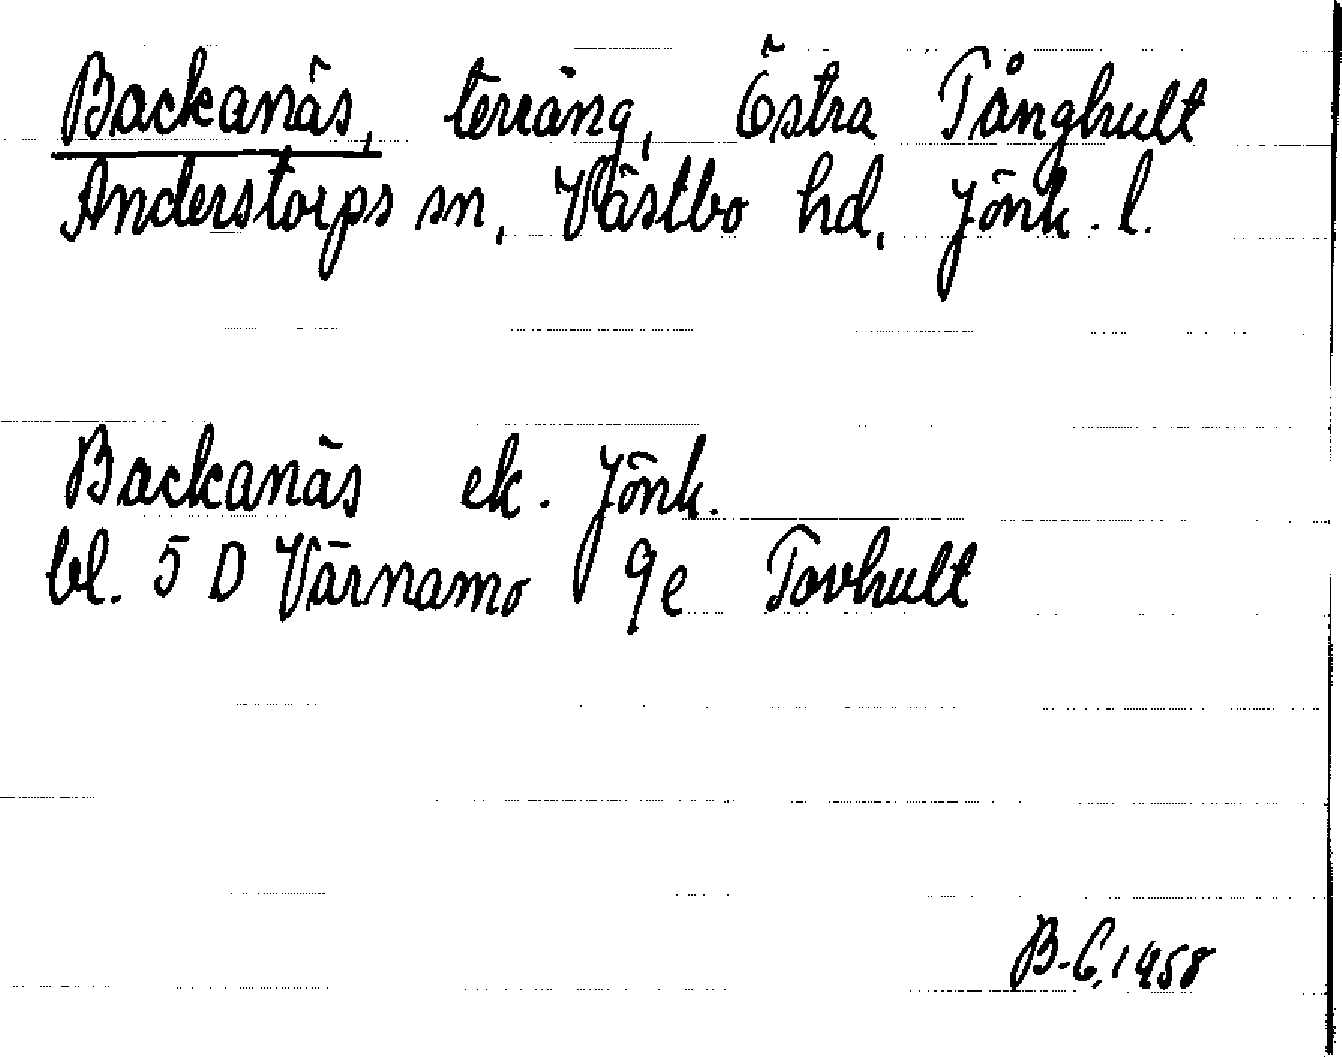 Backanäs, terräng, Östra Tånghult
Anderstorps sn, Västbo hd, Jönk. l.
Backanäs ek. Jönk.
bl. 5 D Värnamo 9e Tovhult
B-C, 1958